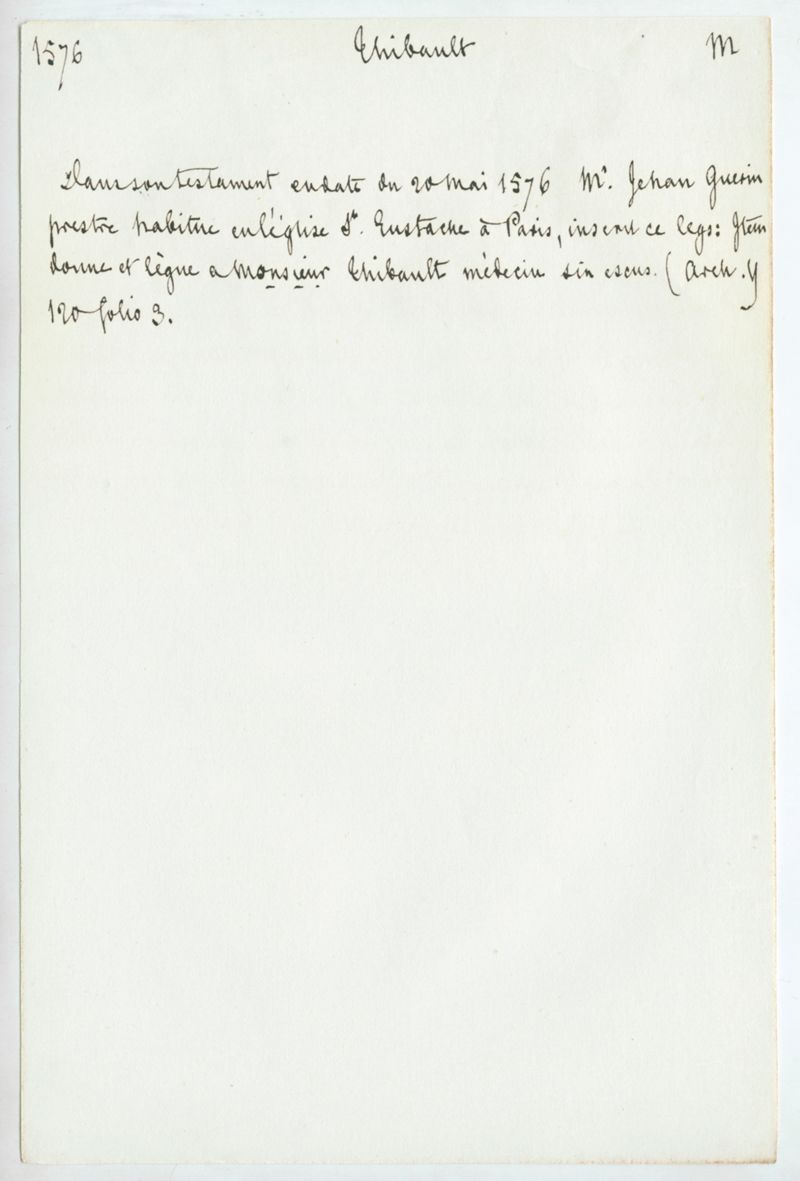 1576 Thibault M
Dans son testament en date du 20 mai 1576 Mr. Jehan Guerin
prestre habitue en l'église St. Eustache à Paris, inscrit ce legs: Item
donne et lègue a Monsieur Thibault médecin six escus. (Arch. Y
120 folio 3.